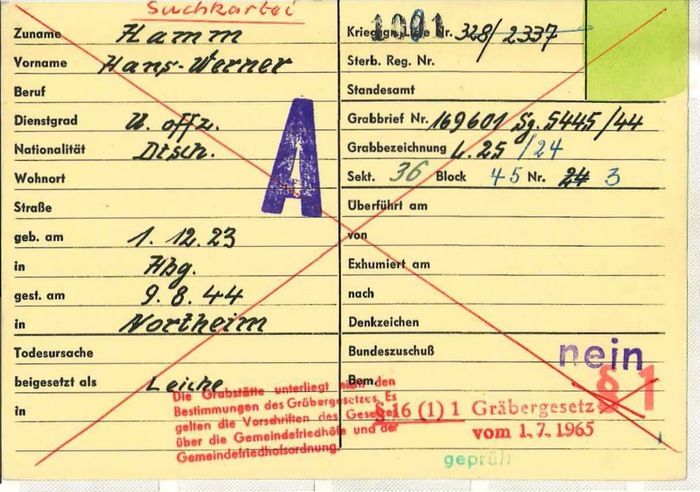 Suchkartei
Zuname Hamm
Vorname Hans-Werner
Beruf
Dienstgrad U. offz.
Nationalität Dtsch.
Wohnort
Straße
geb. am 1. 12. 23
in Hbg.
gest. am 9. 8. 44
in Northeim
Todesursache
beigesetzt als Leiche
in
A
Die Grabstätte unterliegt nicht den
Bestimmungen des Gräbergesetzes. Es
gelten die Vorschriften des Gesetzes
über die Gemeindefriedhöfe und der
Gemeindefriedhofsordnung.
1001
Nr. 328/2337
Sterb. Reg. Nr.
Standesamt
Grabbrief Nr. 169601 Sg. 5445/44
Grabbezeichnung L. 25 /24
Sekt. 36 Block 45 Nr. 24 3
Überführt am
von
Exhumiert am
nach
Denkzeichen
Bundeszuschuß nein
Bem. § 1
§ 16 (1) 1 Gräbergesetz
vom 1.7.1965
geprüft